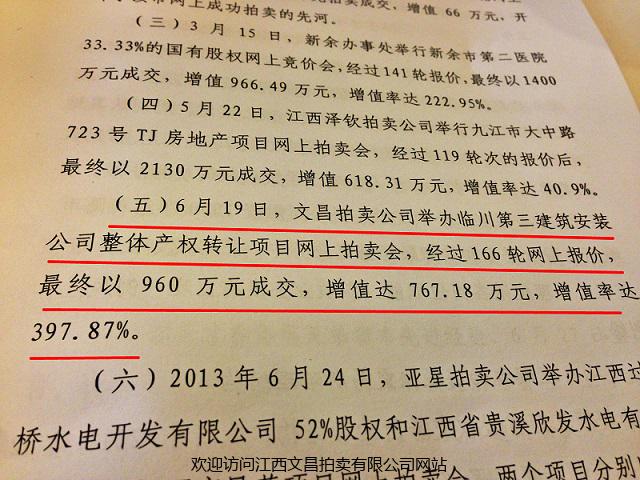 网上成功拍卖的先河。
（三）3 月 15 日，新余办事处举行新余市第二医院
33.33%的国有股权网上竞价会，经过141轮报价，最终以1400
万元成交，增值 966.49 万元，增值率达 222.95%。
（四）5 月 22 日，江西泽钦拍卖公司举行九江市大中路
723 号 TJ 房地产项目网上拍卖会，经过 119 轮次的报价后，
最终以 2130 万元成交，增值 618.31 万元，增值率达 40.9%。
（五）6 月 19 日，文昌拍卖公司举办临川第三建筑安装
公司整体产权转让项目网上拍卖会，经过 166 轮网上报价，
最终以 960 万元成交，增值达 767.18 万元，增值率达
397.87%。
（六）2013 年 6 月 24 日，亚星拍卖公司举办江西过
桥水电开发有限公司 52%股权和江西省贵溪欣发水电有
欢迎访问江西文昌拍卖有限公司网站